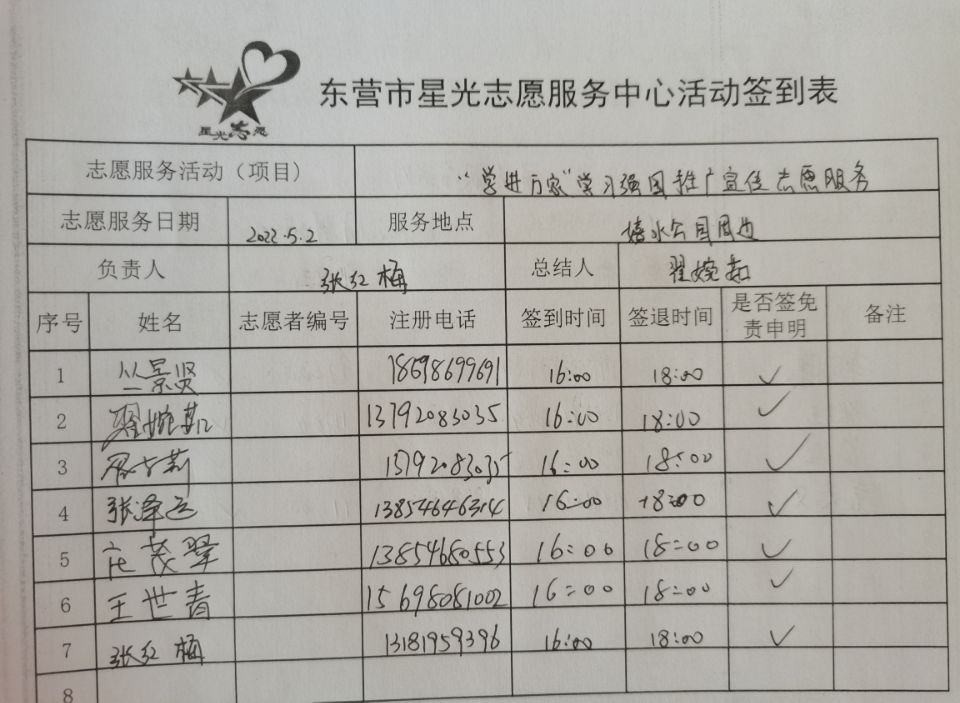 星光志愿
东营市星光志愿服务中心活动签到表
志愿服务活动（项目） “学进万家”学习强国推广宣传志愿服务
志愿服务日期 2022.5.2 服务地点 公园周边
负责人 张红梅 总结人 翟婉茹
序号 姓名 志愿者编号 注册电话 签到时间 签退时间 是否签免责申明 备注
1 丛景贤 18698699691 16:00 18:00 ✓
2 翟婉茹 13792083035 16:00 18:00 ✓
3 13792083035 16:00 18:00 ✓
4 张泽远 13854646314 16:00 18:00 ✓
5 庄茂翠 13854680553 16:00 18:00 ✓
6 王世青 15698081002 16:00 18:00 ✓
7 张红梅 13181959396 16:00 18:00 ✓
8